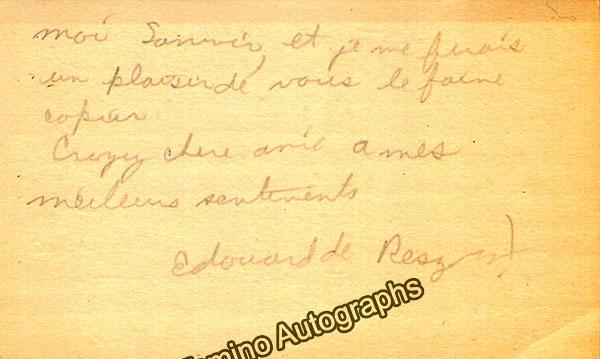 moi Sauvir, et je me ferais
un plaisir de vous le faire
copier
Croyez chere amie a mes
meileurs sentiments
Edouard de Resz
Tamino Autographs